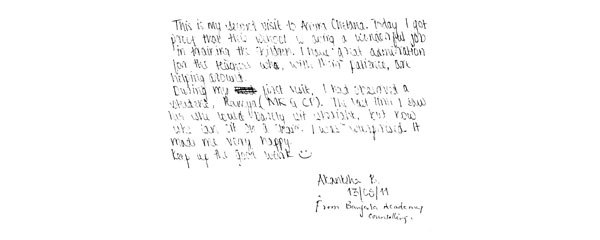 This is my second visit to Aruna Chetana. Today I got
proof that this school is doing a wonderful job
in training the children. I have great admiration
for the teachers who, with their patience, are
helping around.
During my first visit, I had observed a
student, Ramya (MR & CP). The last time I saw
her she could barely sit straight, but now
she can sit on a chair. I was surprised. It
made me very happy.
Keep up the good work ☺
Akanksha B.
13/08/11
From Banjara Academy
Counselling.